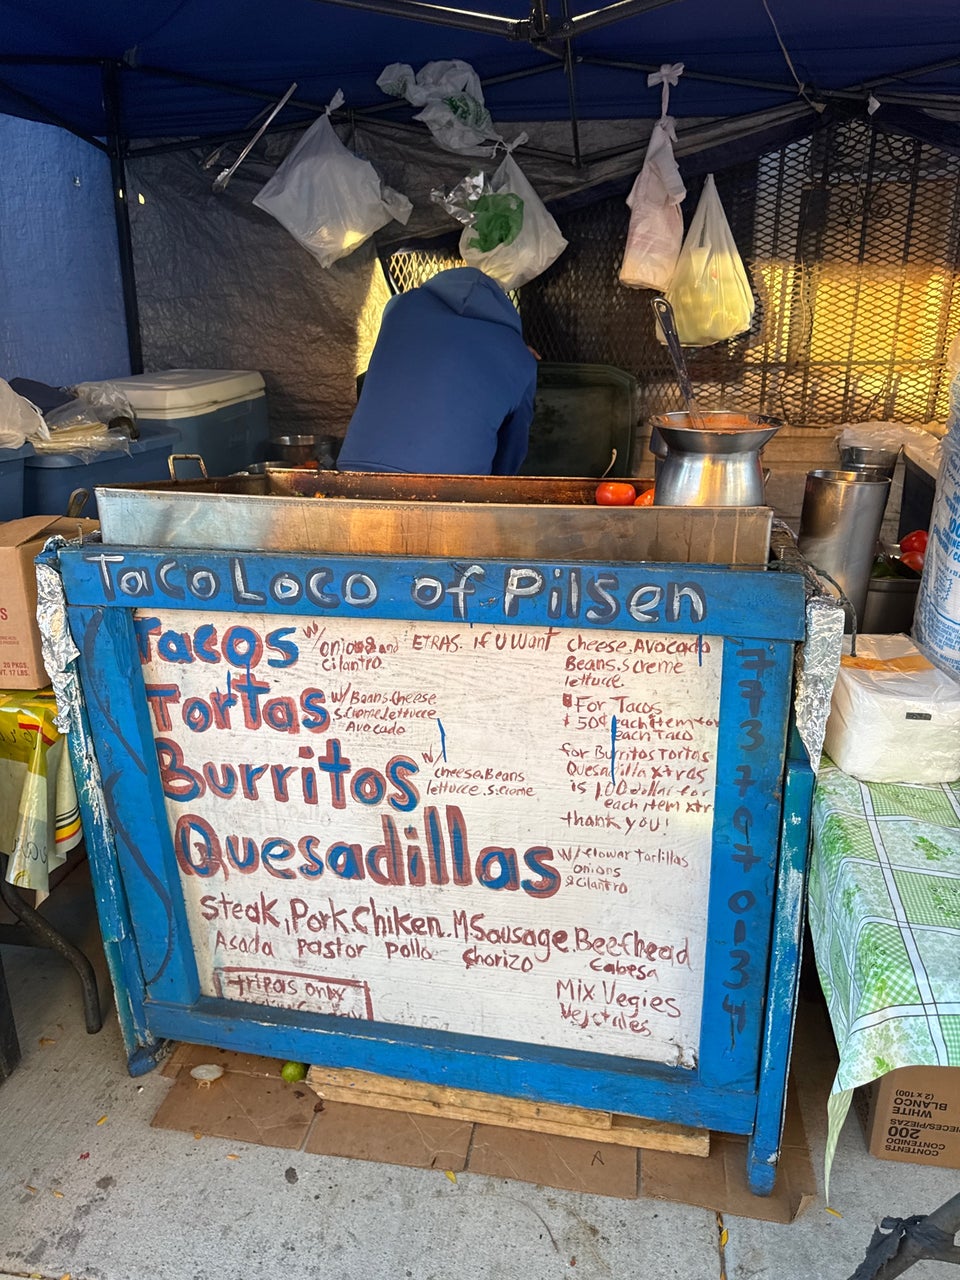 Taco Loco of Pilsen
Tacos w/ onions and
cilantro
ETRAS. if u want cheese. Avocado
Beans. s creme
lettuce.
Tortas w/ Beans. Cheese
s. Creme. lettucce
Avocado
For Tacos
$ 50¢ each item for
each taco
Burritos w/ cheese. Beans
lettucce. s. creme
for Burritos Tortas
Quesadilla xtras
is 1,00 dollar for
each item xtr
thank you!
Quesadillas w/ flower Tortillas
onions
& cilantro
Steak, Pork. Chiken. M Sausage. Beef head
Asada pastor pollo Chorizo Cabesa
tripas only
Mix Vegies
Vejetales
773 707 0134
CONTENTS
CONTENIDO
200
PIECES/PIEZAS
WHITE
BLANCO
(2 x 100)
20 PKGS.
WT. 17 LBS.